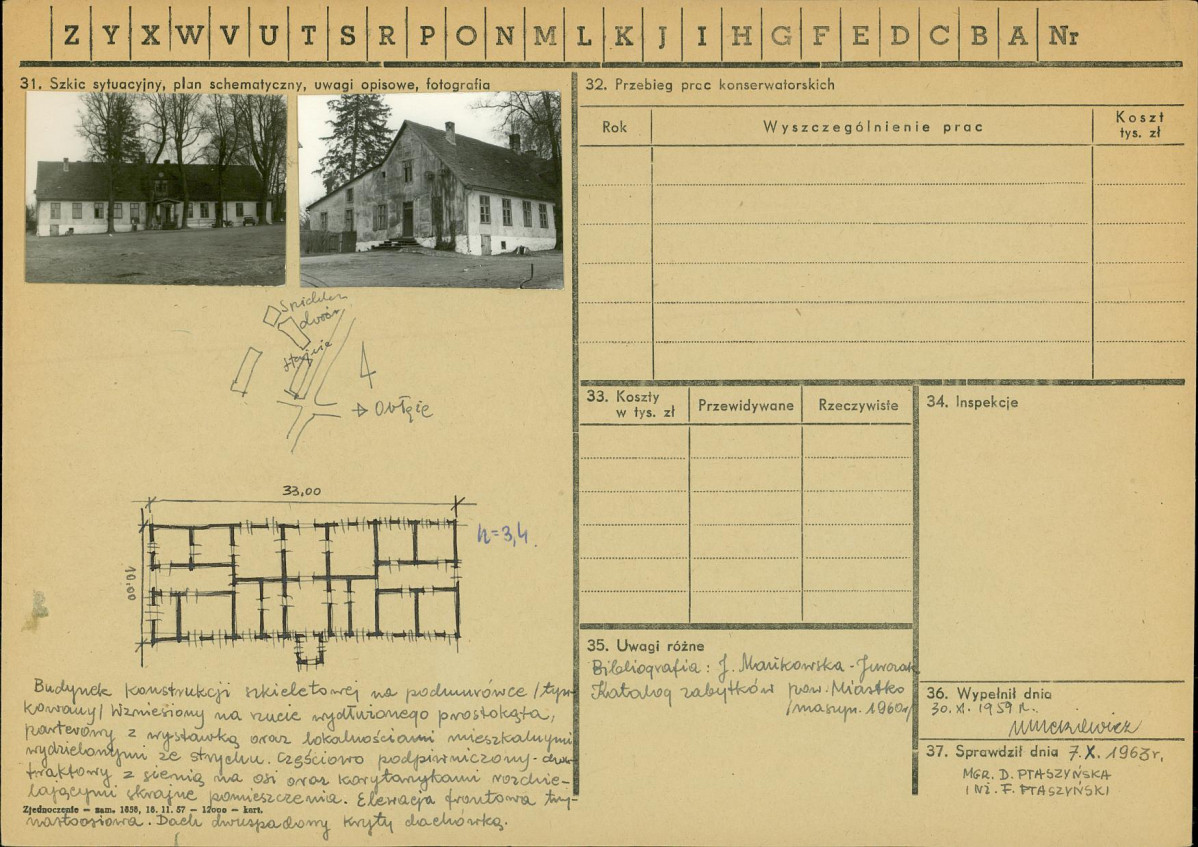 Z Y X W V U T S R P O N M L K J I H G F E D C B A Nr
31. Szkic sytuacyjny, plan schematyczny, uwagi opisowe, fotografia
Spichlerz
dwór
stajnie
Obłęże
33,00
10,00
h=3,4.
Budynek konstrukcji szkieletowej na podmurówce /tyn-
kowany/ Wzniesiony na rzucie wydłużonego prostokąta,
parterowy z wystawką oraz lokalnościami mieszkalnymi
wydzielonymi ze strychu. Częściowo podpiwniczony - dwu-
traktowy z sienią na osi oraz korytarzykami rozdzie-
lającymi skrajne pomieszczenia. Elewacja frontowa trzy-
nastoosiowa. Dach dwuspadowy kryty dachówką.
Zjednoczenie — zam. 1858, 18. 11. 57 — 12000 — kart.
32. Przebieg prac konserwatorskich
Rok
Wyszczególnienie prac
Koszt
tys. zł
33. Koszty
w tys. zł
Przewidywane
Rzeczywiste
34. Inspekcje
35. Uwagi różne
Bibliografia: J.
Katalog zabytków pow. Miastko
/maszyn. 1960r/
36. Wypełnił dnia
30.XI. 1959 r.
37. Sprawdził dnia 7.X. 1963r.
MGR. D. PTASZYŃSKA
I INŻ. F. PTASZYŃSKI